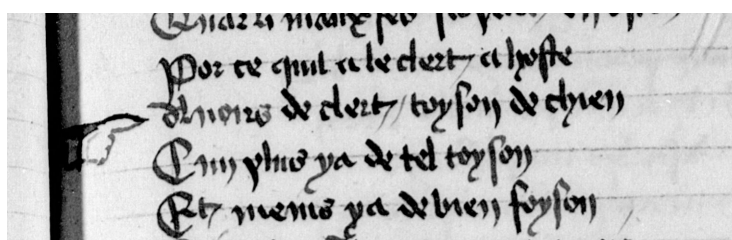 Por ce quil a le clert a hoste
Avoirs de clert toyson de chien
Cum plus ya de tel toyson
Et meins ya de bien foyson